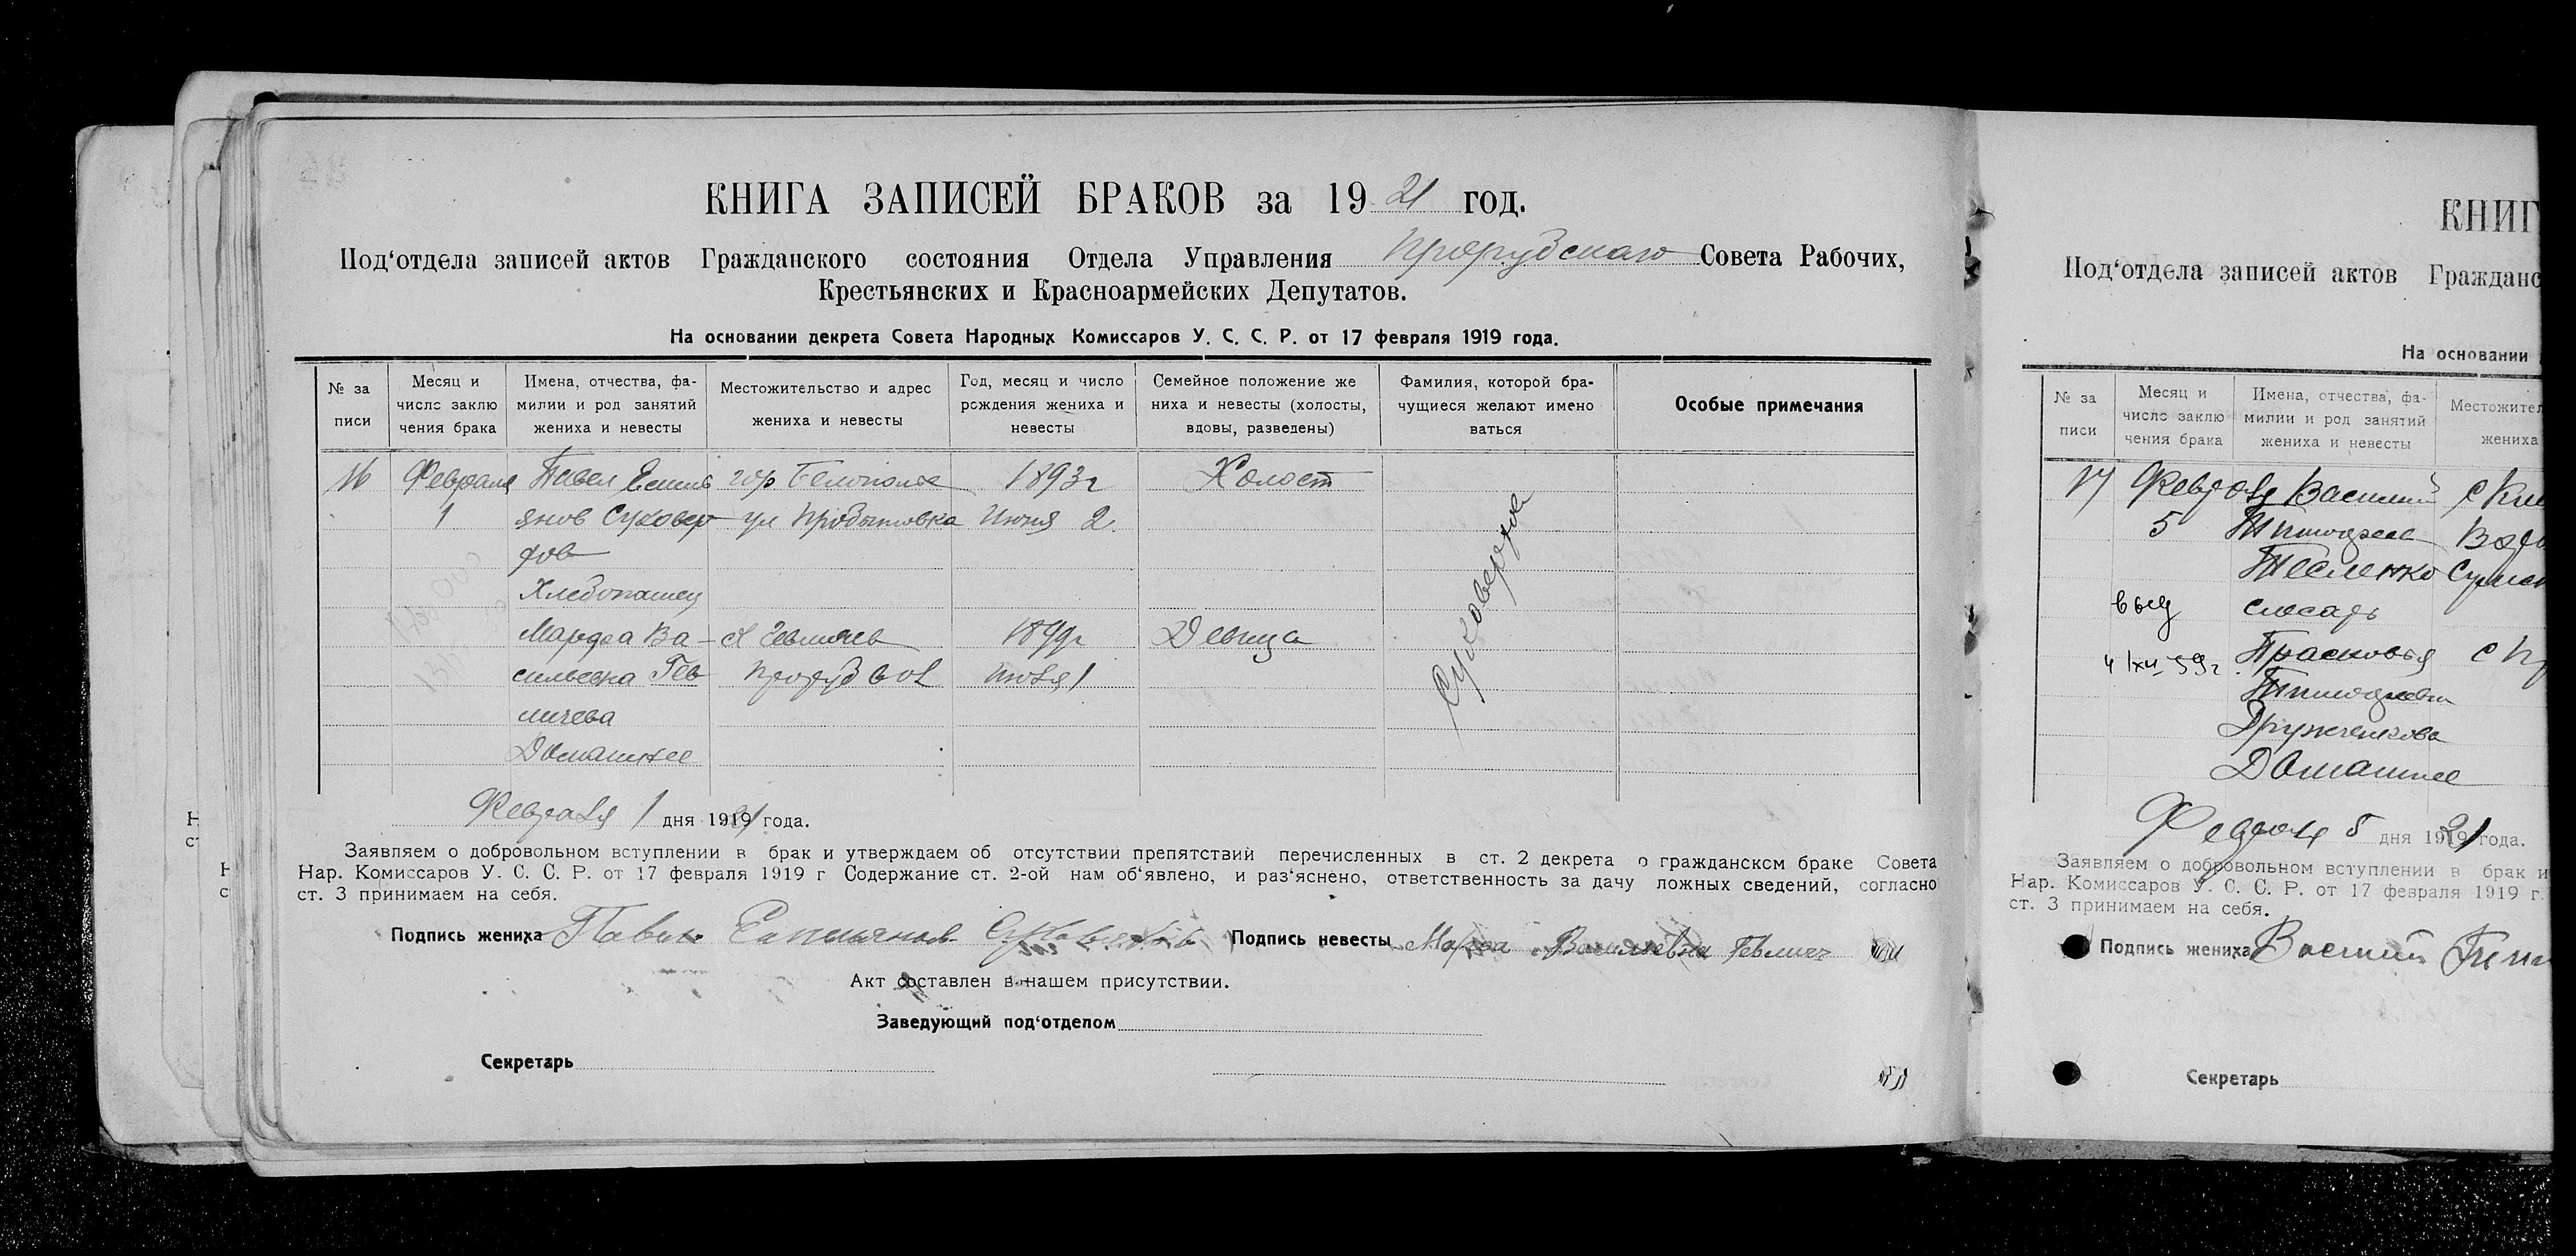 КНИГА ЗАПИСЕЙ БРАКОВ за 1921 год.
Под‘отдела записей актов Гражданского состояния Отдела Управления Прорубскаго Совета Рабочих,
Крестьянских и Красноармейских Депутатов.
На основании декрета Совета Народных Комиссаров У. С. С. Р. от 17 февраля 1919 года.
№ за писи
Месяц и число заклю чения брака
Имена, отчества, фамилии и род занятий жениха и невесты
Местожительство и адрес жениха и невесты
Год, месяц и число рождения жениха и невесты
Семейное положение же ниха и невесты (холосты, вдовы, разведены)
Фамилия, которой брачущиеся желают имено ваться
Особые примечания
16 Февраля Павел Емиль гор Белополье 1893г Холост
1 янов Суховер ул Июня 2.
хов
Хлебопашец
Марфа Ва- 1899г Девица
сильевна Гев Проруб вол Июля 1
личева
Домашнее
Февраля 1 дня 1921 года.
Заявляем о добровольном вступлении в брак и утверждаем об отсутствии препятствий перечисленных в ст. 2 декрета о гражданском браке Совета
Нар. Комиссаров У. С. С. Р. от 17 февраля 1919 г Содержание ст. 2-ой нам об‘явлено, и раз‘яснено, ответственность за дачу ложных сведений, согласно
ст. 3 принимаем на себя.
Подпись жениха Павел Подпись невесты Марфа Васильевна Гевлич
Акт составлен в нашем присутствии.
Заведующий под‘отделом
Секретарь
КНИГ
Под‘отдела записей актов Гражданс
На основании
№ за писи
Месяц и число заклю чения брака
Имена, отчества, фамилии и род занятий жениха и невесты
Местожител жениха
17 Февраля Василий
5 Тимофеев
Тесленко
выд слесарь
4/XII 59г. Прасковья с Пр
Тимофеевна
Друженкова
Домашнее
Февраля 5 дня 1921 года.
Заявляем о добровольном вступлении в брак и
Нар. Комиссаров У. С. С. Р. от 17 февраля 1919 г.
ст. 3 принимаем на себя.
Подпись жениха Василий
Секретарь